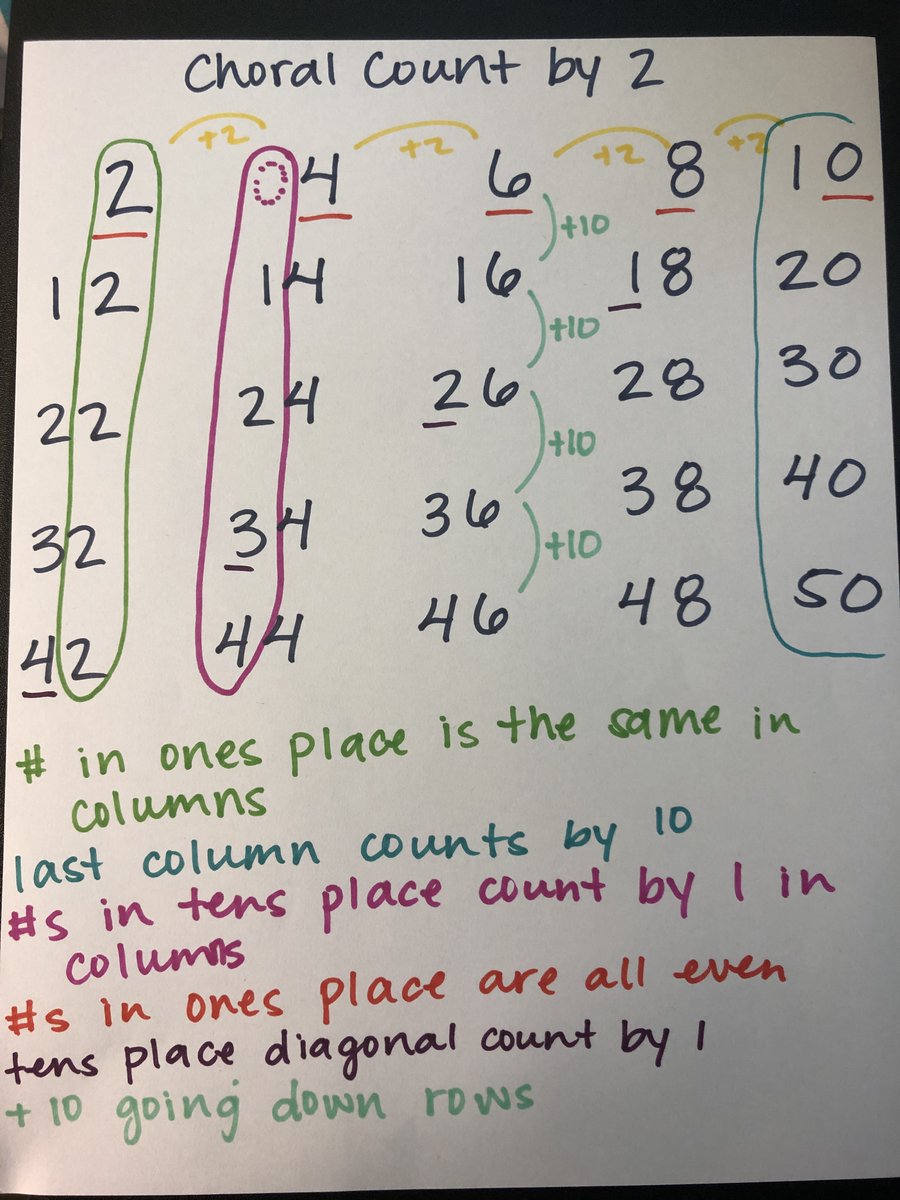 Choral Count by 2
+2 +2 +2 +2
2 04 6 8 10
+10
12 14 16 18 20
+10
22 24 26 28 30
+10
32 34 36 38 40
+10
42 44 46 48 50
# in ones place is the same in
columns
last column counts by 10
#s in tens place count by 1 in
columns
#s in ones place are all even
tens place diagonal count by 1
+10 going down rows